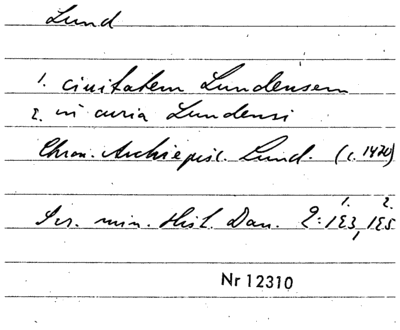 Lund
1. ciuitatem Lundensem
2. in curia Lundensi
Chron. Archiepisc. Lund. (c. 1470)
1. 2.
Scr. min. Hist. Dan. 2:123, 125
Nr 12310